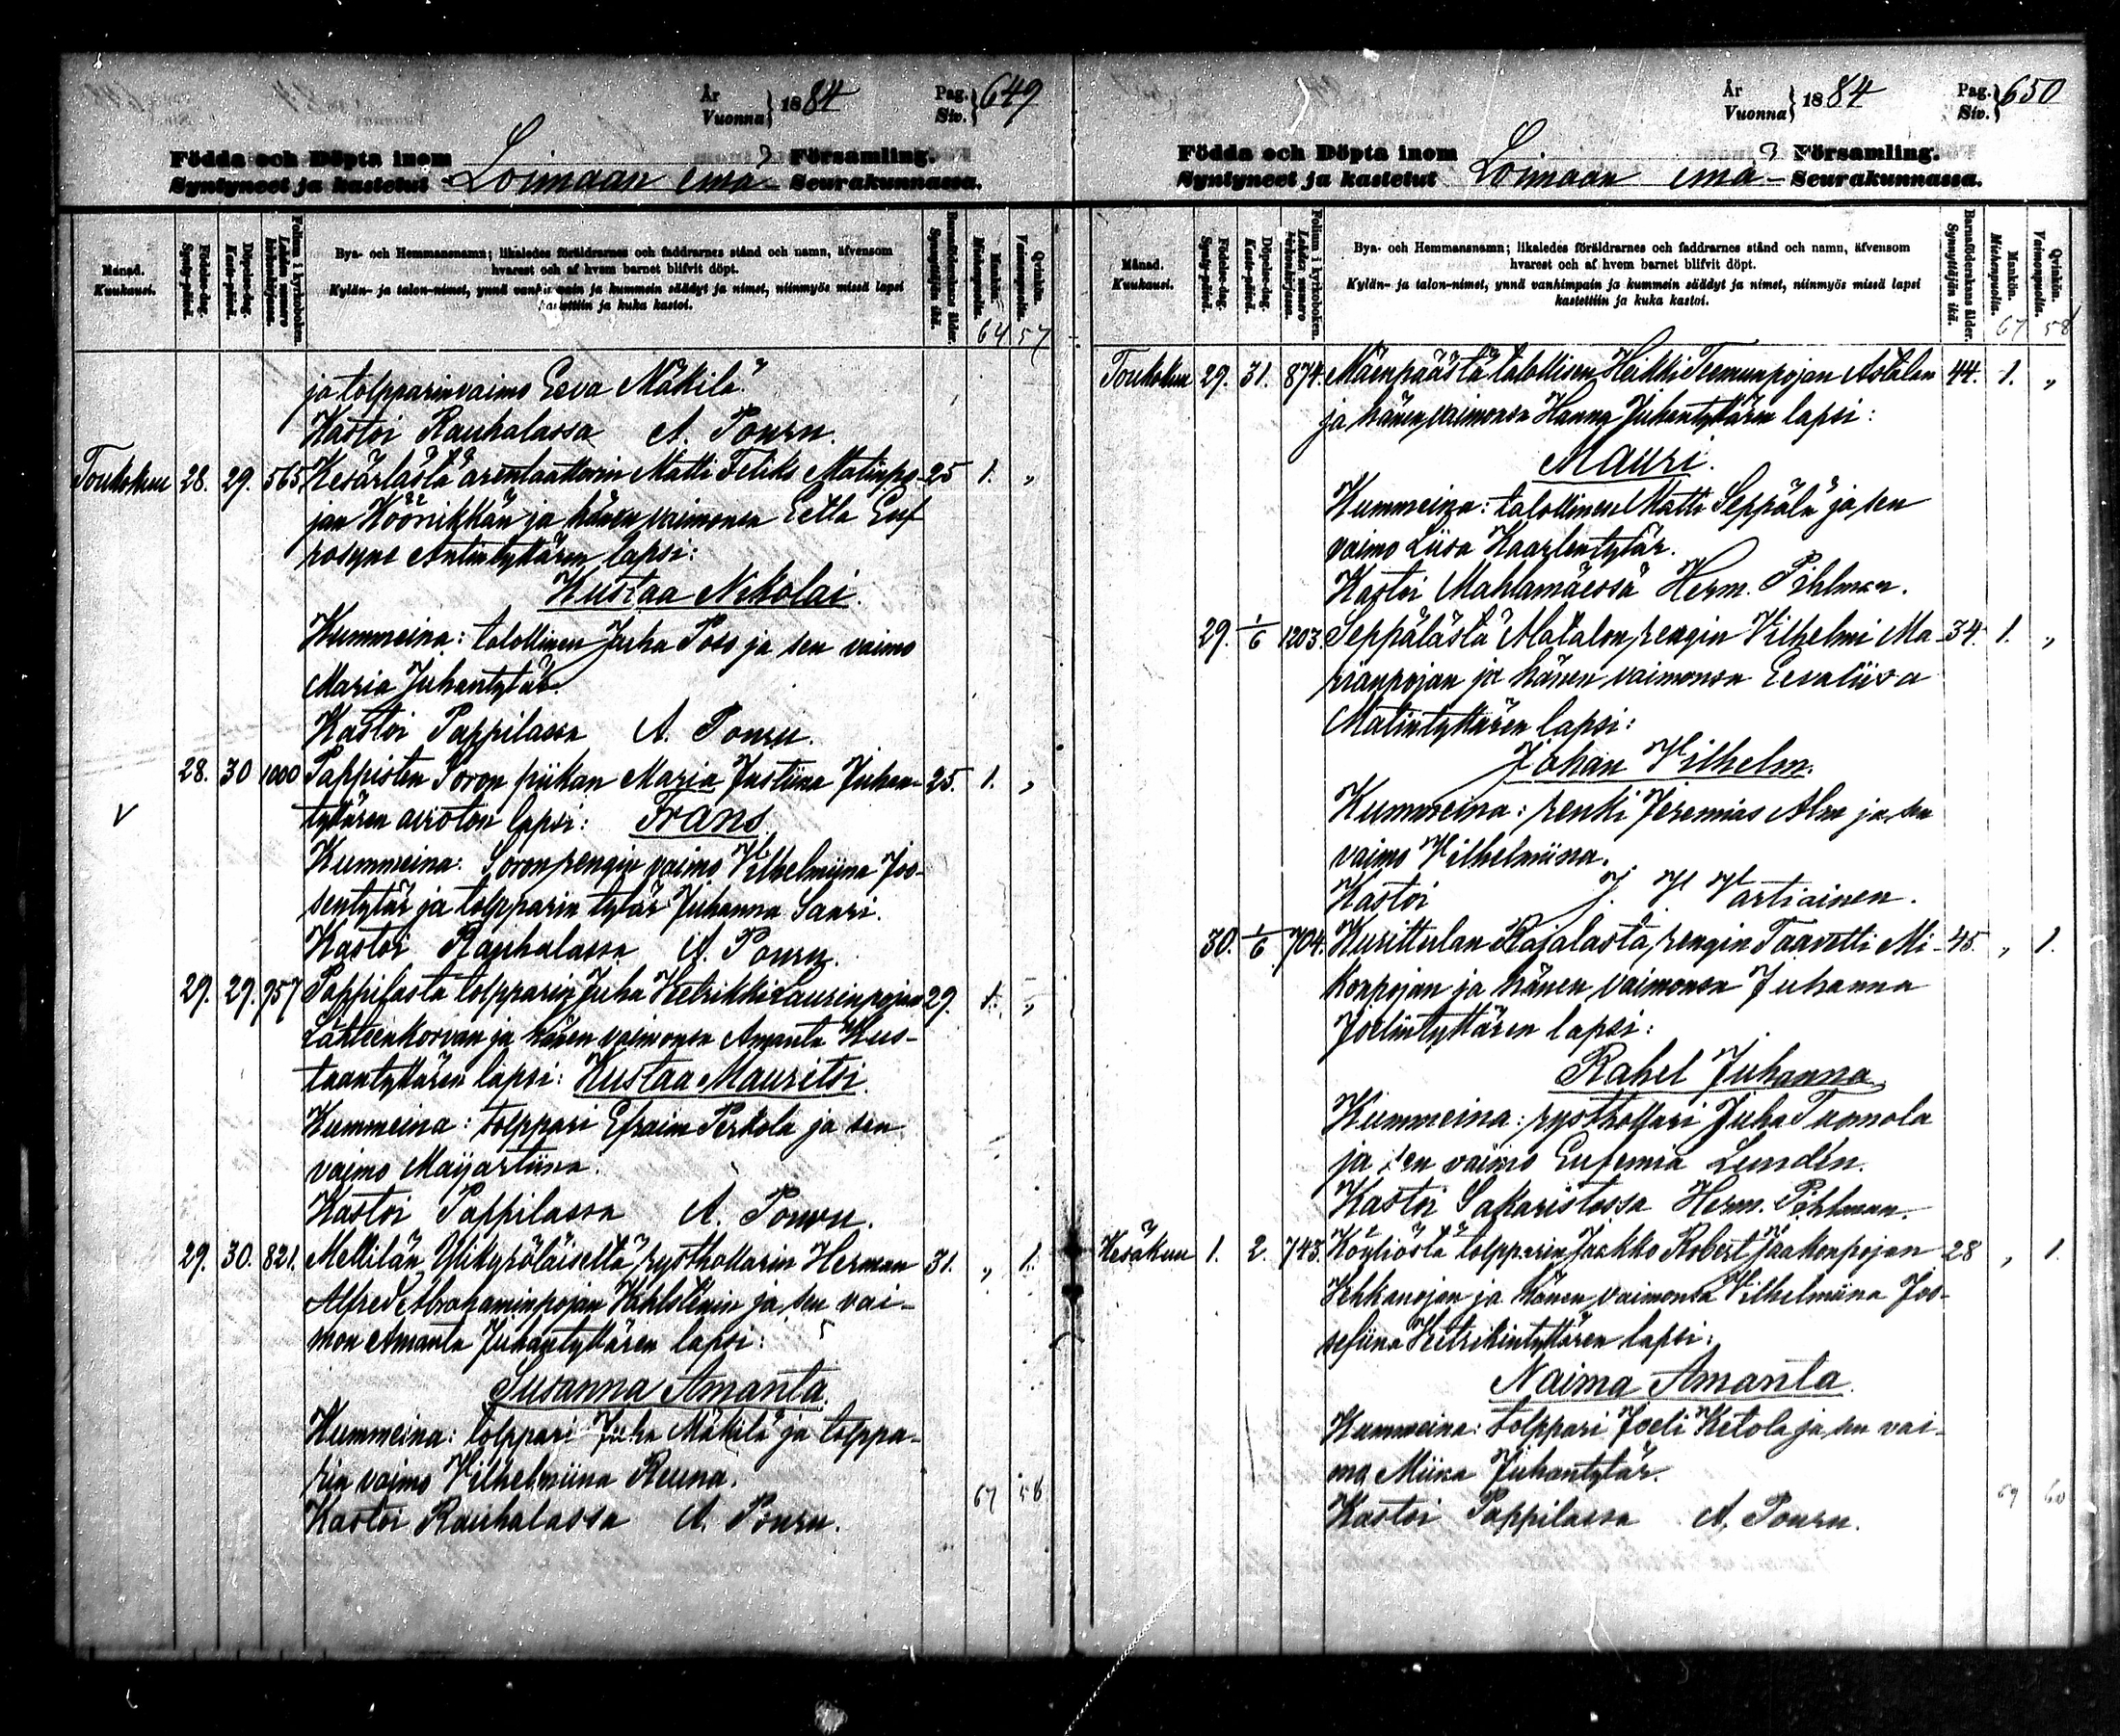 År
Vuonna } 1884 Pag. Siv. } 649
Födda och Döpta inom Församling.
Syntyneet ja kastetut Loimaan emä- Seurakunnassa.
Månad. Kuukausi.
Födelse-dag. Synty-päivä.
Döpelse-dag. Kaste-päivä.
Folium i kyrkoboken. Lehden numero kirkonkirjassa.
Bya- och Hemmansnamn; likaledes föräldrarnes och faddrarnes stånd och namn, äfvensom
hvarest och af hvem barnet blifvit döpt.
Kylän- ja talon-nimet, ynnä vanhimpain ja kummein säädyt ja nimet, niinmyös missä lapsi
kastettiin ja kuka kastoi.
Barnaföderskans ålder. Synnyttäjän ikä.
Mankön. Miehenpuolta. 64
Qvinkön. Vaimonpuolta. 57
ja tolpparinvaimo Eeva Mäkilä.
Kastoi Rauhalassa A. Pouru.
Toukokuu 28. 29. 565 Kesärlästä arentaattorin Matti Feliks Matinpo- 25 1. „
jan Köörikkän ja hänen vaimonsa Eetla Euf
rosyne Antintyttären lapsi:
Kustaa Nikolai.
Kummeina: talollinen Juha Poso ja sen vaimo
Maria Juhantytär.
Kastoi Pappilassa A. Pouru.
28. 30 1000 Pappisten Soron piikan Maria Justiina Juhan- 25. 1. „
tyttären avioton lapsi: Frans
Kummeina: Soron rengin vaimo Vilhelmiina Joo-
sentytär ja tolpparin tytär Juhanna Saari.
Kastoi Rauhalassa A. Pouru.
29. 29. 957 Pappilasta tolpparin Juha Hetrikki Laurinpojan 29. 1. „
Lähteenkorvan ja hänen vaimonsa Amanta Kus-
taantyttären lapsi: Kustaa Mauritsi.
Kummeina: tolppari Efraim Perkola ja sen
vaimo Maijastiina.
Kastoi Pappilassa A. Pouru.
29. 30. 821. Mellilän Ylikyröläiseltä rysthollarin Herman 31. „ 1.
Alfred Abrahaminpojan Vahlstenin ja sen vai-
mon Amanta Juhantyttären lapsi:
Susanna Amanta.
Kummeina: tolppari Juha Mäkilä ja tolppa-
rin vaimo Vilhelmiina Reuna.
Kastoi Rauhalassa A. Pouru.
67 58
År
Vuonna } 1884 Pag. Siv. } 650
Födda och Döpta inom Församling.
Syntyneet ja kastetut Loimaan emä- Seurakunnassa.
Månad. Kuukausi.
Födelse-dag. Synty-päivä.
Döpelse-dag. Kaste-päivä.
Folium i kyrkoboken. Lehden numero kirkonkirjassa.
Bya- och Hemmansnamn; likaledes föräldrarnes och faddrarnes stånd och namn, äfvensom
hvarest och af hvem barnet blifvit döpt.
Kylän- ja talon-nimet, ynnä vanhimpain ja kummein säädyt ja nimet, niinmyös missä lapsi
kastettiin ja kuka kastoi.
Barnaföderskans ålder. Synnyttäjän ikä.
Mankön. Miehenpuolta. 67
Qvinkön. Vaimonpuolta. 58
Toukokuu 29. 31. 874. Mäenpäästä talollisen Heikki Teemunpojan Astalan 44. 1. „
ja hänen vaimonsa Hanna Juhantyttären lapsi:
Mauri.
Kummeina: talollinen Matti Seppälä ja sen
vaimo Liisa Kaarlentytär.
Kastoi Mahlamäessä Herm. Pihlman.
29. 1/6 1203. Seppälästä Alatalon rengin Vilhelmi Ma- 34. 1. „
rianpojan ja hänen vaimonsa Eevaliisa
Matintyttären lapsi:
Johan Vilhelm.
Kummeina: renki Jeremias Alm ja sen
vaimo Vilhelmiina.
Kastoi J. H. Vartiainen.
30. 1/6 704. Kurittulan Rajalasta, rengin Taavetti Mi- 45. „ 1.
konpojan ja hänen vaimonsa Juhanna
Joelintyttären lapsi:
Rahel Juhanna
Kummeina: rysthollari Juha Tuomola
ja sen vaimo Eufemia Lundén.
Kastoi Sakaristossa Herm. Pihlman.
Kesäkuu 1. 2. 743. Köyliöstä tolpparin Jaakko Robert Jaakonpojan 28 „ 1.
Vehkanojan ja hänen vaimonsa Vilhelmiina Joo-
sefiina Hetrikintyttären lapsi:
Naima Amanta.
Kummeina: tolppari Joeli Ketola ja sen vai-
mo Miina Juhantytär.
Kastoi Pappilassa A. Pouru.
69 60